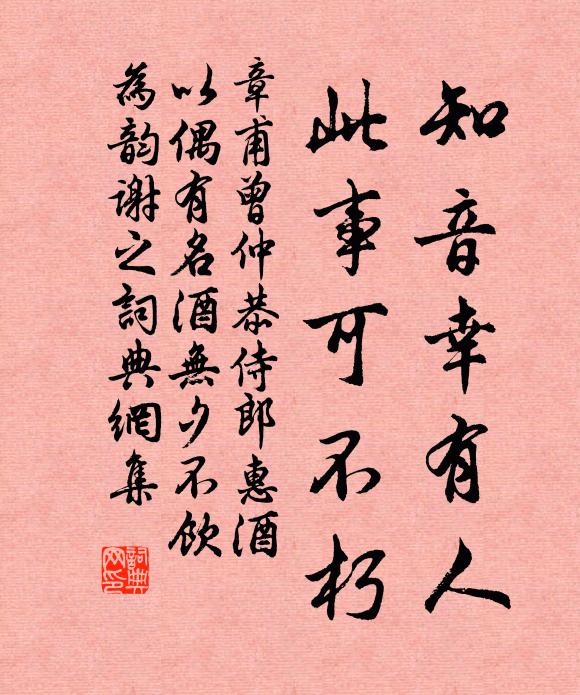 知音幸有人
此事可不朽
章甫曾仲恭侍郎惠酒
以偶有名酒無夕不飲
為韵謝之詞典網集
詞典网印